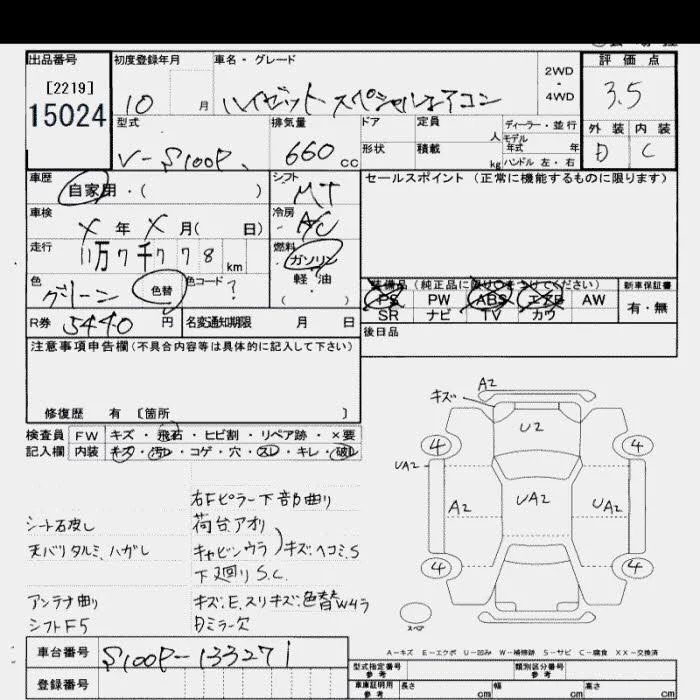 出品番号
[2219]
15024
初度登録年月
10 月
車名・グレード
ハイゼットスペシャルエアコン
2WD
・
4WD
評 価 点
3.5
外 装 内 装
D C
型式
V-S100P
排気量
660 cc
ドア
形状
定員
人
積載
kg
ディーラー・並行
モデル
年式 年
ハンドル 左・右
車歴
自家用・( )
シフト
MT
セールスポイント (正常に機能するものに限ります)
車検
X 年 X 月( 日)
冷房
A/C
走行
11万7千778km
燃料
ガソリン
軽・油
・( )
色
グリーン
色替
色コード
?
装備品(純正品に限り○をつけてください)
PS PW ABS エアB AW
SR ナビ TV カワ
新車保証書
有・無
R券 5440 円
名変通知期限 月 日
後日品
注意事項申告欄(不具合内容等は具体的に記入して下さい)
修復歴 有 [箇所 ]
検査員 FW キズ・飛石・ヒビ割・リペア跡・×要
記入欄 内装 キズ・汚レ・コゲ・穴・スレ・キレ・破レ
右Fピラー下部曲り
荷台アオリ
天バリタルミ、ハガレ
キャビンウラ キズ、ヘコミ、S
下廻りS.C.
アンテナ曲り
キズ.E.スリキズ.色替W4ラ
シフトF5
キズ A2
U2
4 4
UA2
A2 UA2 UA2
4 4
スペア
A-キズ E-エクボ U-凹み W-補修跡 S-サビ C-腐食 XX-交換済
車台番号 S100P-133271
登録番号
型式指定番号
参考
類別区分番号
参考
車庫証明用
参考
長さ cm 幅 cm 高さ cm